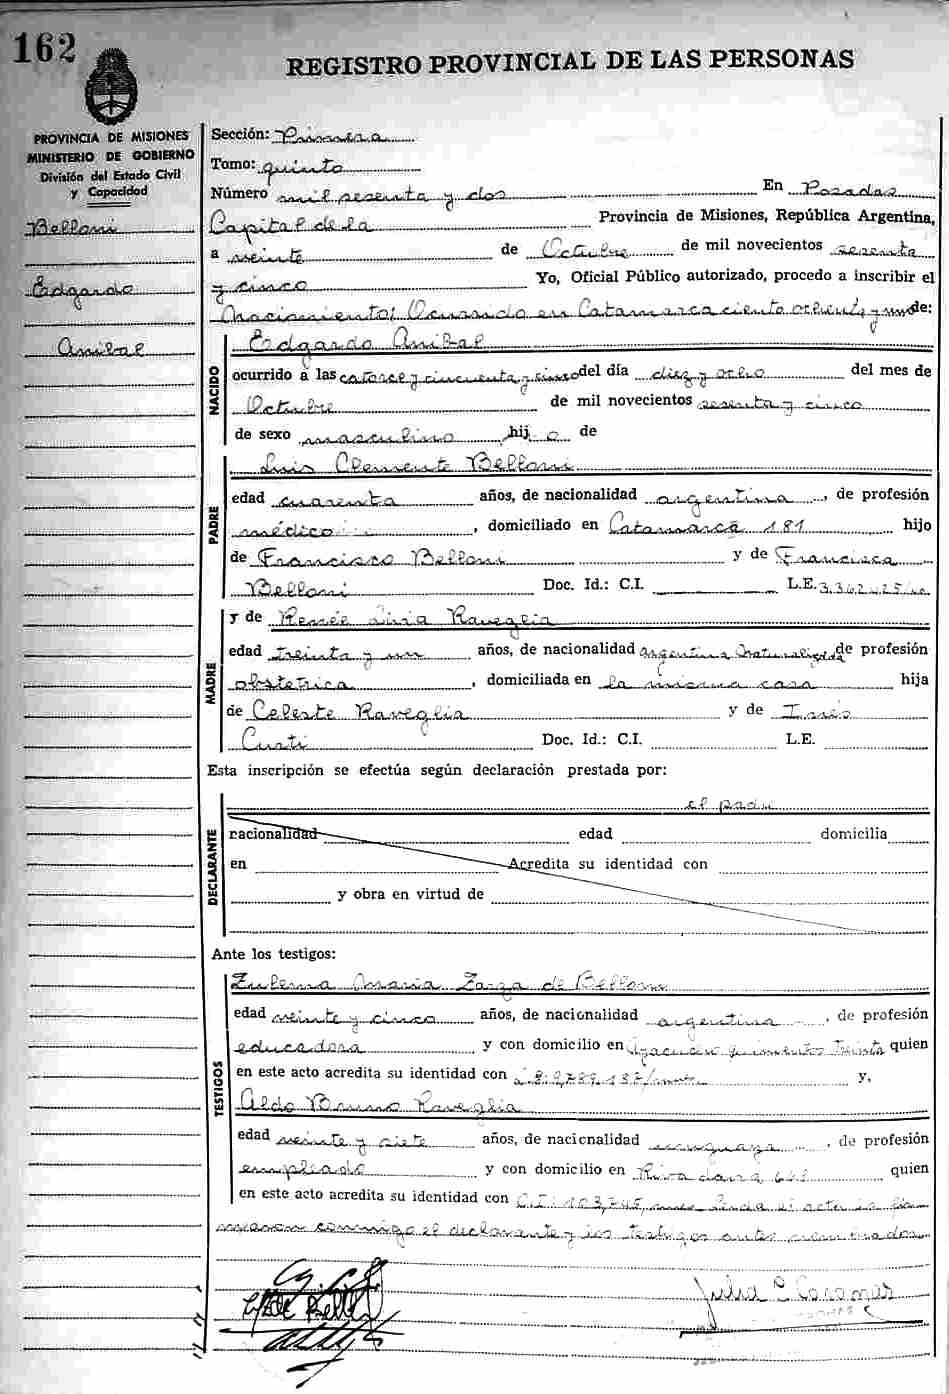 162
REGISTRO PROVINCIAL DE LAS PERSONAS
PROVINCIA DE MISIONES
MINISTERIO DE GOBIERNO
División del Estado Civil
y Capacidad
Belloni
Edgardo
Anibal
Sección: Primera
Tomo: quinto
Número mil sesenta y dos En Posadas
Capital de la Provincia de Misiones, República Argentina,
a veinte de Octubre de mil novecientos sesenta
y cinco Yo, Oficial Público autorizado, procedo a inscribir el
Nacimiento/ Ocurrido en Catamarca ciento ochenta y uno de:
NACIDO
Edgardo Anibal
ocurrido a las catorce y cincuenta y cinco del día diez y ocho del mes de
Octubre de mil novecientos sesenta y cinco
de sexo masculino hij o de
PADRE
Luis Clemente Belloni
edad cuarenta años, de nacionalidad argentina, de profesión
médico, domiciliado en Catamarca 181 hijo
de Francisco Belloni y de Francisca
Belloni Doc. Id.: C.I. L.E. 3.362.425
MADRE
y de Renée Livia Raveglia
edad treinta y un años, de nacionalidad argentina Naturalizada de profesión
obstetrica, domiciliada en la misma casa hija
de Celeste Raveglia y de Inés
Curti Doc. Id.: C.I. L.E.
Esta inscripción se efectúa según declaración prestada por:
DECLARANTE
el padre
nacionalidad edad domicilia
en Acredita su identidad con
y obra en virtud de
Ante los testigos:
TESTIGOS
Zulema Maria Zarza de Belloni
edad veinte y cinco años, de nacionalidad argentina, de profesión
educadora y con domicilio en Ayacucho quinientos treinta quien
en este acto acredita su identidad con y,
Aldo Bruno Raveglia
edad veinte y siete años, de nacionalidad uruguaya, de profesión
empleado y con domicilio en Rivadavia quien
en este acto acredita su identidad con C.I. 103,745, leida el acta la fir
maron conmigo el declarante y los testigos antes nombrados
Julia E Coronas